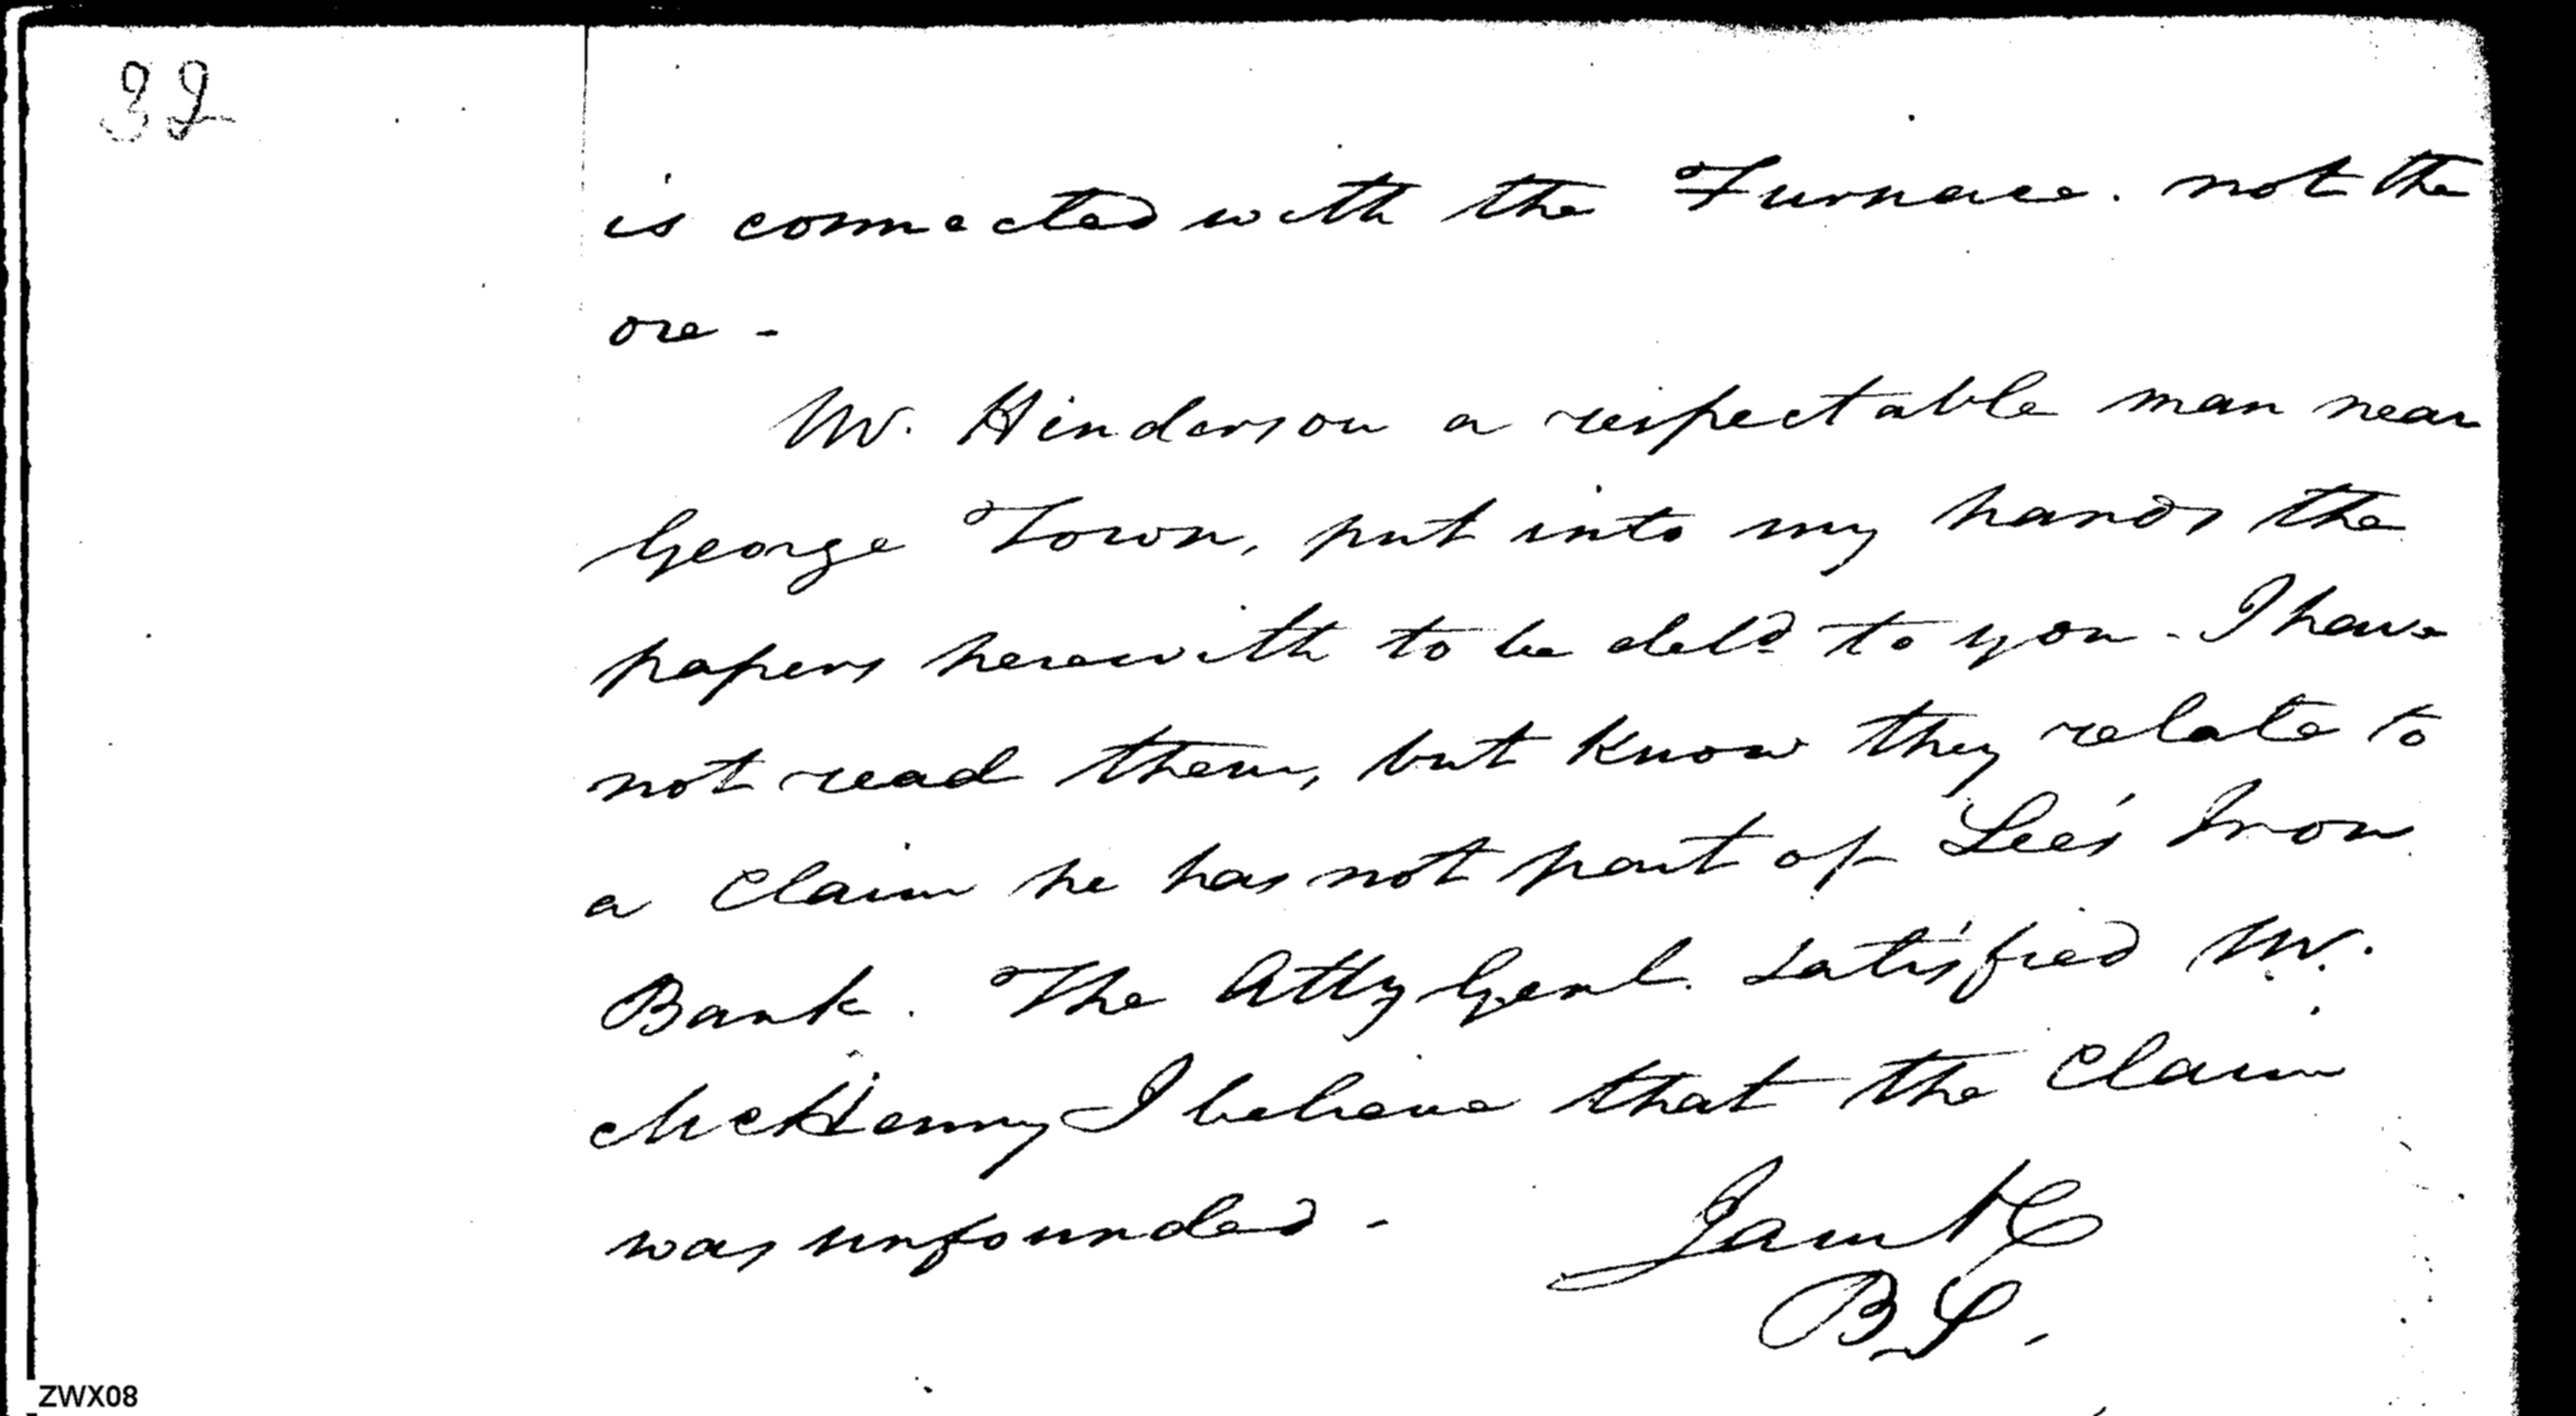 32
is connected with the Furnace. not the
ore -
Mr. Hinderson a respectable man near
George Town, put into my hands the
papers herewith to be deld to you - I have
not read them, but know they relate to
a claim he has not part of Lee's Iron
Bank. The Atty Genl. satisfied Mr.
McHenry I believe that the Claim
was unfounded -
I am &C
B S.
ZWX08